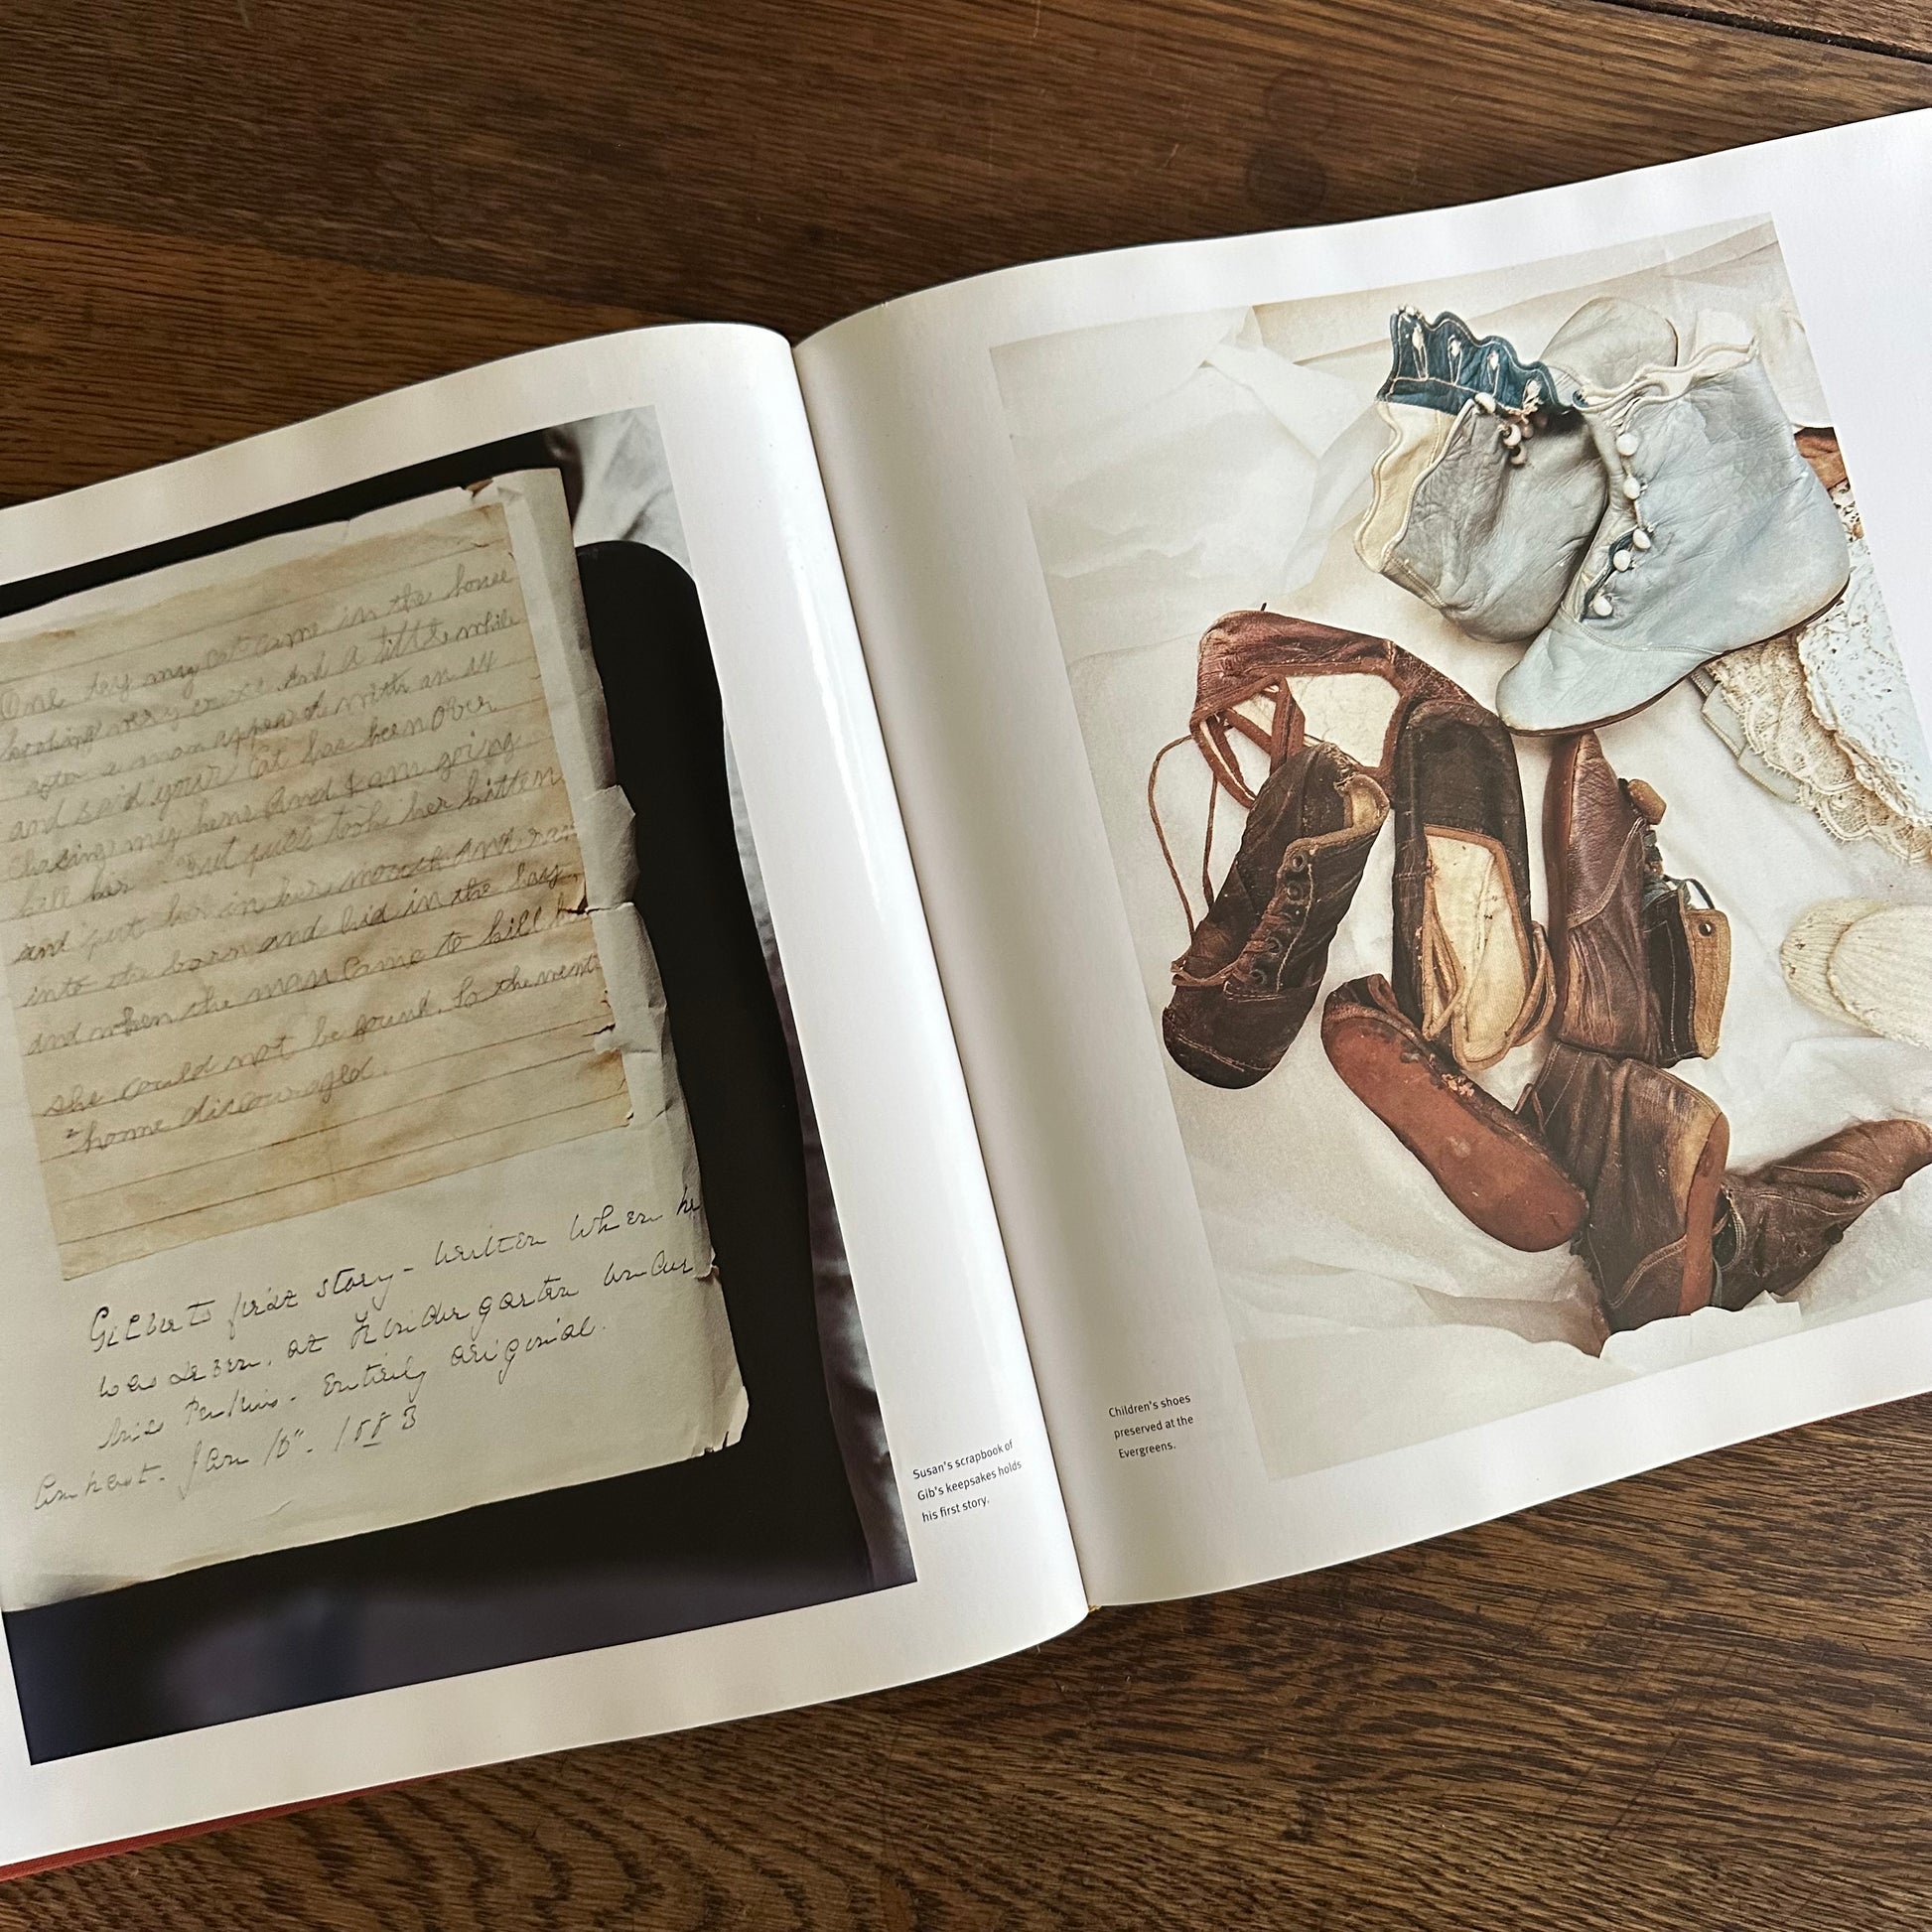 One dey my cat came in the house
looking very cross and A little while
after a man appeared with an
and said your Cat has been Over
Chasing my hens And I am going
kill her But puss took her kitten
and put her in her mouth And ran
into the barn and hid in the hay
and when the man Came to kill her
she could not be found. So the went
home discouraged.
Gilbert's first story – written when he
was seven, at Kindergarten under
Miss Perkins – Entirely original.
Amherst – Jan 15" – 1883
Susan's scrapbook of
Gib's keepsakes holds
his first story.
Children's shoes
preserved at the
Evergreens.